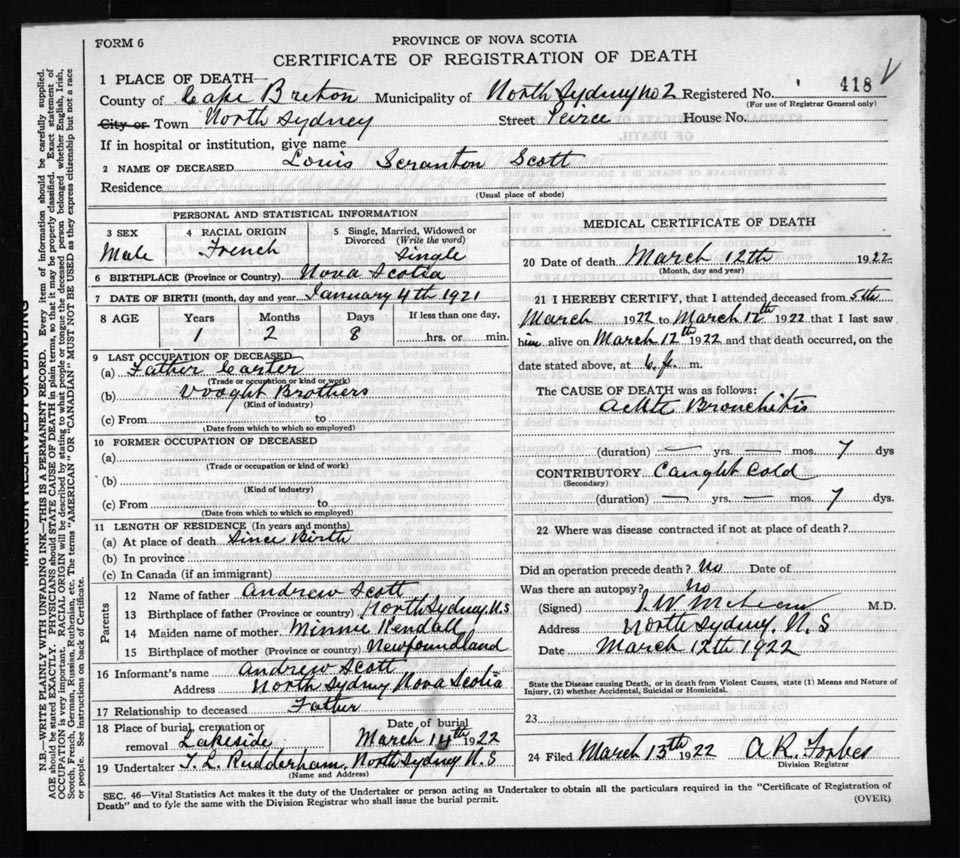 FORM 6
PROVINCE OF NOVA SCOTIA
CERTIFICATE OF REGISTRATION OF DEATH
1 PLACE OF DEATH—
County of Cape Breton Municipality of North Sydney No 2 Registered No. 418
(For use of Registrar General only)
City or Town North Sydney Street Peirce House No.
If in hospital or institution, give name
2 NAME OF DECEASED Louis Scranton Scott
Residence
(Usual place of abode)
PERSONAL AND STATISTICAL INFORMATION
3 SEX 4 RACIAL ORIGIN 5 Single, Married, Widowed or
Divorced (Write the word)
Male French Single
6 BIRTHPLACE (Province or Country) Nova Scotia
7 DATE OF BIRTH (month, day and year January 4th 1921
8 AGE Years Months Days If less than one day,
1 2 8 hrs. or min.
9 LAST OCCUPATION OF DECEASED
(a) Father Carter
(Trade or occupation or kind or work)
(b) Vooght Brothers
(Kind of industry)
(c) From to
(Date from which to which so employed)
10 FORMER OCCUPATION OF DECEASED
(a)
(Trade or occupation or kind of work)
(b)
(Kind of industry)
(c) From to
(Date from which to which so employed)
11 LENGTH OF RESIDENCE (In years and months)
(a) At place of death Since Birth
(b) In province
(c) In Canada (if an immigrant)
Parents
12 Name of father Andrew Scott
13 Birthplace of father (Province or country) North Sydney, N.S
14 Maiden name of mother Minnie Kendall
15 Birthplace of mother (Province or country) Newfoundland
16 Informant's name Andrew Scott
Address North Sydney Nova Scotia
17 Relationship to deceased Father
18 Place of burial, cremation or Date of burial
removal Lakeside March 14th 1922
19 Undertaker T. L. Rudderham, North Sydney N.S
(Name and Address)
MEDICAL CERTIFICATE OF DEATH
20 Date of death March 12th 1922
(Month, day and year)
21 I HEREBY CERTIFY, that I attended deceased from 5th
March 1922 to March 12th 1922 that I last saw
him alive on March 12th 1922 and that death occurred, on the
date stated above, at 6 p. m.
The CAUSE OF DEATH was as follows:
Acute Bronchitis
(duration) — yrs. — mos. 7 dys
CONTRIBUTORY Caught Cold
(Secondary)
(duration) — yrs. — mos. 7 dys.
22 Where was disease contracted if not at place of death?
Did an operation precede death? No Date of
Was there an autopsy? No
(Signed) M.D.
Address North Sydney, N. S
Date March 12th 1922
State the Disease causing Death, or in death from Violent Causes, state (1) Means and Nature of
Injury, (2) whether Accidental, Suicidal or Homicidal.
23
24 Filed March 13th 1922 A R. Forbes
Division Registrar
SEC. 46—Vital Statistics Act makes it the duty of the Undertaker or person acting as Undertaker to obtain all the particulars required in the "Certificate of Registration of
Death" and to fyle the same with the Division Registrar who shall issue the burial permit.
(OVER)
MARGIN RESERVED FOR BINDING
N.B.—WRITE PLAINLY WITH UNFADING INK—THIS IS A PERMANENT RECORD. Every item of information should be carefully supplied.
AGE should be stated EXACTLY. PHYSICIANS should STATE CAUSE OF DEATH in plain terms, so that it may be properly classified. Exact statement of
OCCUPATION is very important. RACIAL ORIGIN will be described by stating to what people or tongue the deceased person belonged whether English, Irish,
Scotch, French, German, Russian, Ruthenian, etc. The terms "AMERICAN" OR "CANADIAN" MUST NOT BE USED as they express citizenship but not a race
or people. See instructions on back of Certificate.